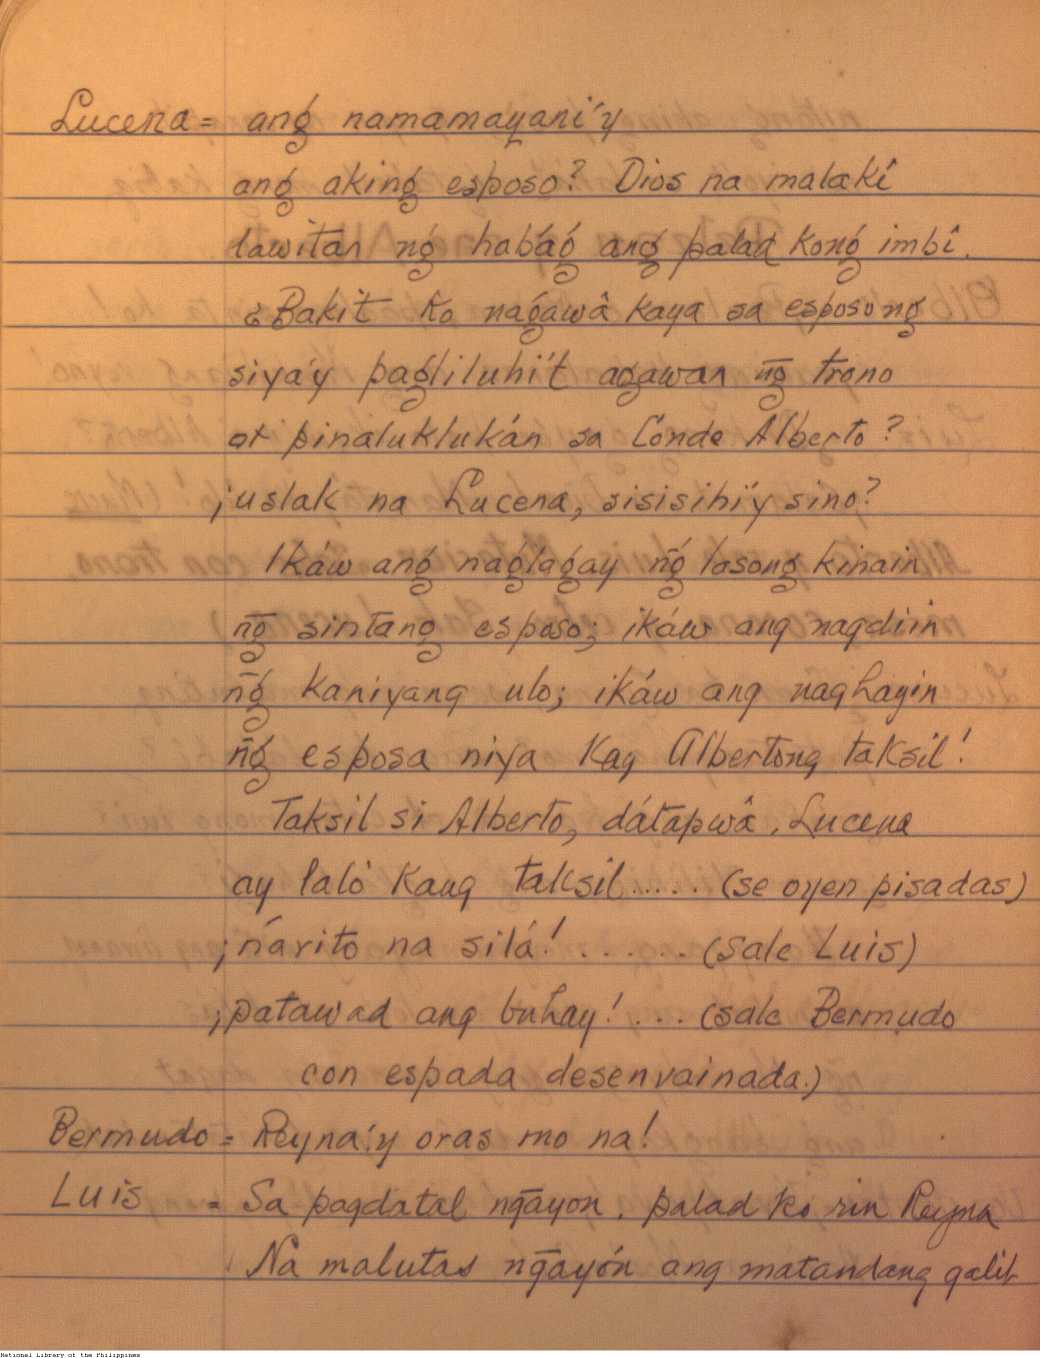 Lucena = ang namamayani'y
ang aking esposo? Dios na malakî
lawitan ng̃ habág ang palad kong imbî.
¿Bakit ko nágawâ kaya sa esposong
siya'y pagliluhi't agawan n̄g trono
at pinaluklukán sa Conde Alberto?
¡uslak na Lucena, sisisihi'y sino?
Ikáw ang naglagay n̄g lasong kinain
n̄g sintang esposo; ikáw ang nagdiin
n̄g kaniyang ulo; ikáw ang naghayin
n̄g esposa niya kay Albertong taksil!
Taksil si Alberto, dátapwâ, Lucena
ay lalò kang taksil ..... (se oyen pisadas)
¡nárito na silá! ...... (sale Luis)
¡patawad ang buhay! ... (sale Bermudo
con espada desenvainada.)
Bermudo = Reyna'y oras mo na!
Luis = Sa pagdatal ng̃ayon, palad ko rin Reyna
Na malutas ng̃ayón ang matandang galit
National Library of the Philippines